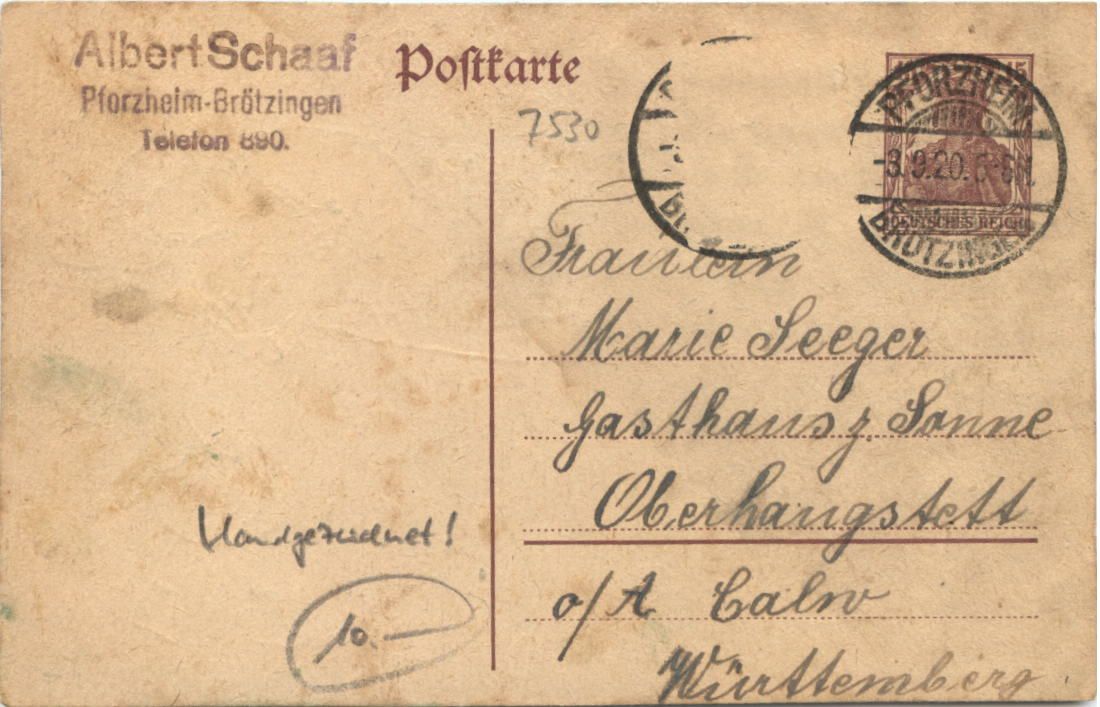 Albert Schaaf
Pforzheim-Brötzingen
Telefon 890.
Postkarte
7530
15
PFORZHEIM
-8.9.20.
BRÖTZINGEN
DEUTSCHES REICH
Fräulein
Marie Seeger
Gasthaus z. Sonne
Oberhaugstett
o/A. Calw
Württemberg.
Handgezeichnet!
10.—